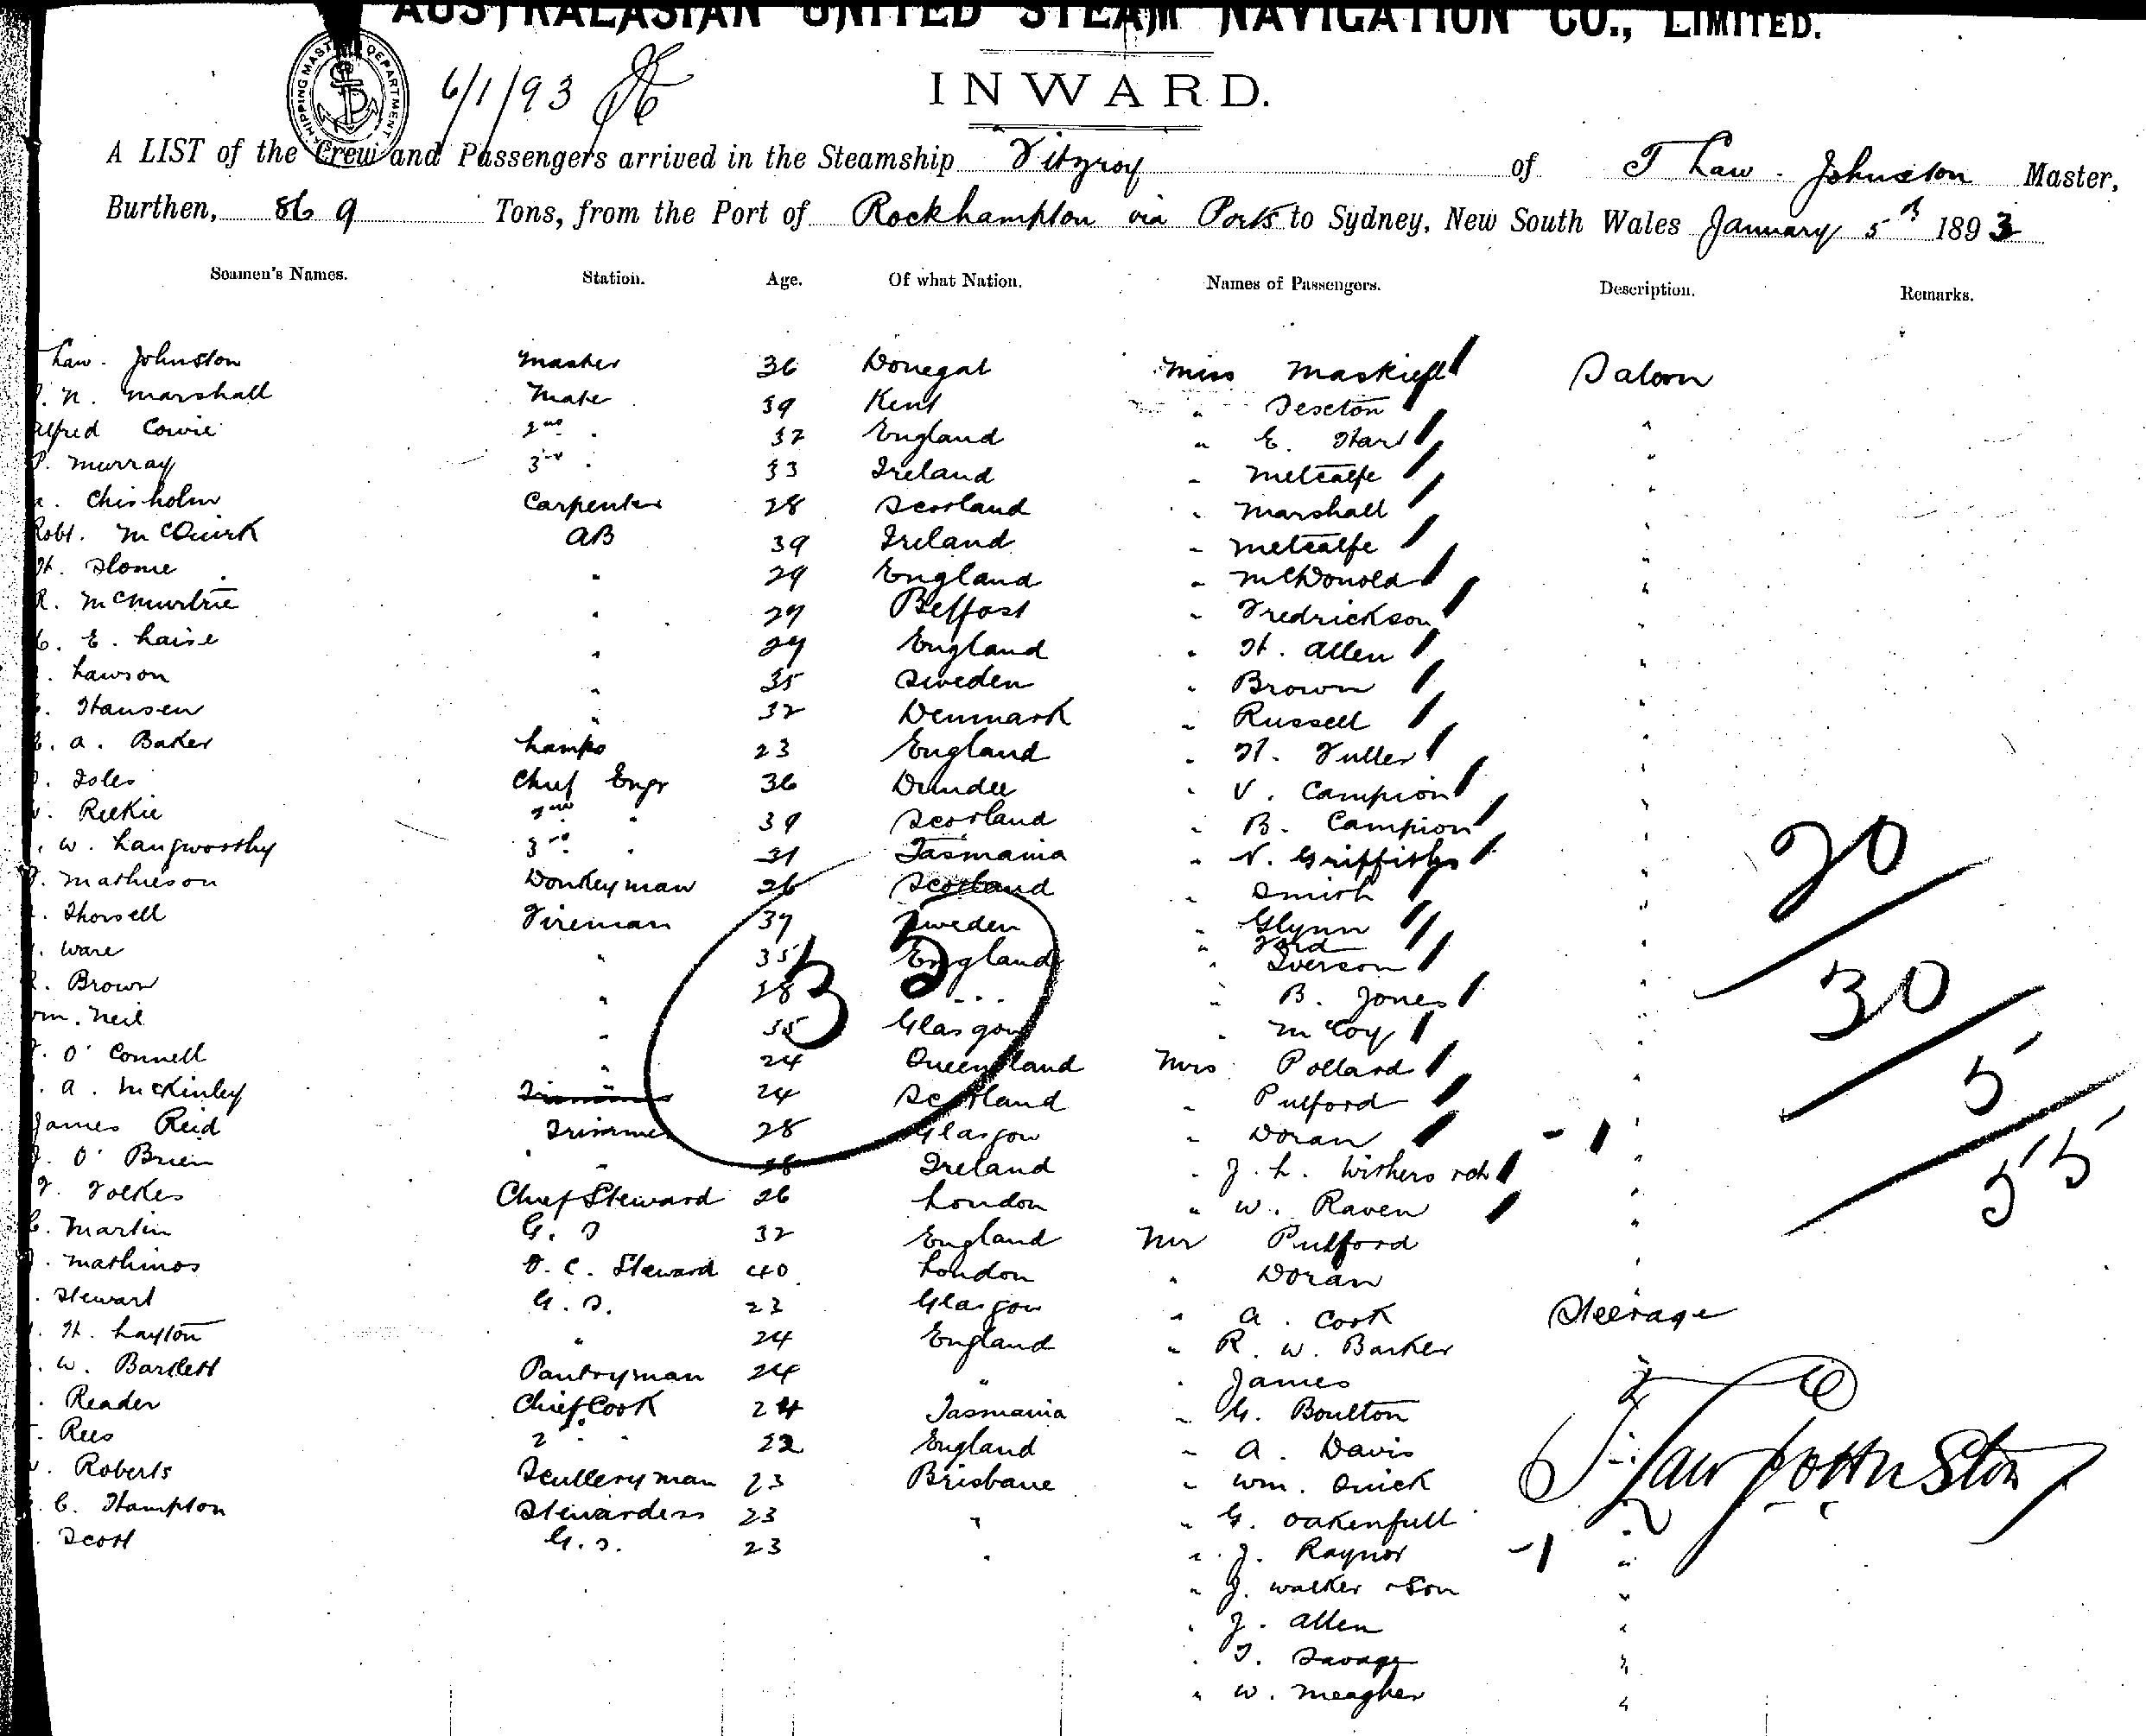 AUSTRALASIAN UNITED STEAM NAVIGATION CO., LIMITED.
SHIPPING MASTERS DEPARTMENT
6/1/93
INWARD.
A LIST of the Crew and Passengers arrived in the Steamship Fitzroy of T Law. Johnston Master,
Burthen, 869 Tons, from the Port of Rockhampton via Ports to Sydney, New South Wales January 5th 1893
Seamen's Names. Station. Age. Of what Nation. Names of Passengers. Description. Remarks.
Law. Johnston Master 36 Donegal Miss Maskiell Saloon
N. Marshall Mate 39 Kent " Seseton "
Alfred Cowie 2nd " 32 England " E. Hart "
P. Murray 3rd " 33 Ireland " Metcalfe "
Chisholm Carpenter 28 Scotland " Marshall "
Robt. McQuirk AB 39 Ireland " Metcalfe "
H. Slome " 29 England " McDonold "
R. McMurtrie " 29 Belfast " Fredrickson "
E. Laise " 29 England " H. Allen "
Lawson " 35 Sweden " Brown "
Hansen " 32 Denmark " Russell "
A. Baker Lamps 23 England " H. Fuller "
Isles Chief Engr 36 Dundee " V. Campion "
Reekie 2nd " 39 Scotland " B. Campion "
W. Langworthy 3rd " 31 Tasmania " N. Griffiths "
Mathieson Donkeyman 26 Scotland " Smith "
Thorsell Fireman 37 Sweden " Glynn "
Ware " 35 England " Ford
" Iverson "
Brown " 28 " " B. Jones "
Wm. Neil " 35 Glasgow " McCoy "
O'Connell " 24 Queensland Mrs Pollard "
A. McKinley " 24 Scotland " Pulford "
James Reid Trimmer 28 Glasgow " Doran - 1 "
O'Brien " 28 Ireland " J. L. Withers "
Folkes Chief Steward 26 London " W. Raven "
Martin G. S 32 England Mr Pulford "
Mathinos F. C. Steward 40 London " Doran "
Stewart G. S. 23 Glasgow " A. Cook Steerage
H. Layton " 24 England " R. W. Barker
W. Bartlett Pantryman 24 " " James "
Reader Chief Cook 24 Tasmania " G. Boulton
Rees 2 " 22 England " A. Davis
Roberts Scullery man 23 Brisbane " Wm. Quick
C. Hampton Stewardess 23 " " G. Oakenfull "
Scott G. S. 23 " " J. Raynor -1 "
" J. Walker & Son "
" J. Allen "
" T. Savage "
" W. Meagher "
35
20
30
5
55
T Law Johnston